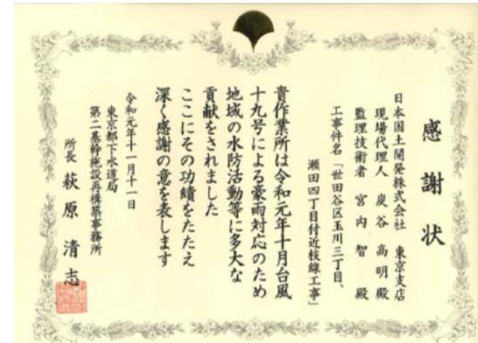 感謝状
日本国土開発株式会社　東京支店
現場代理人　炭谷　高明　殿
監理技術者　宮内　智　殿
工事件名「世田谷区玉川三丁目、
瀬田四丁目付近枝線工事」
貴作業所は令和元年十月台風
十九号による豪雨対応のため
地域の水防活動等に多大な
貢献をされました
ここにその功績をたたえ
深く感謝の意を表します
令和元年十一月十一日
東京都下水道局
第二基幹施設再構築事務所
所長　萩原　清志